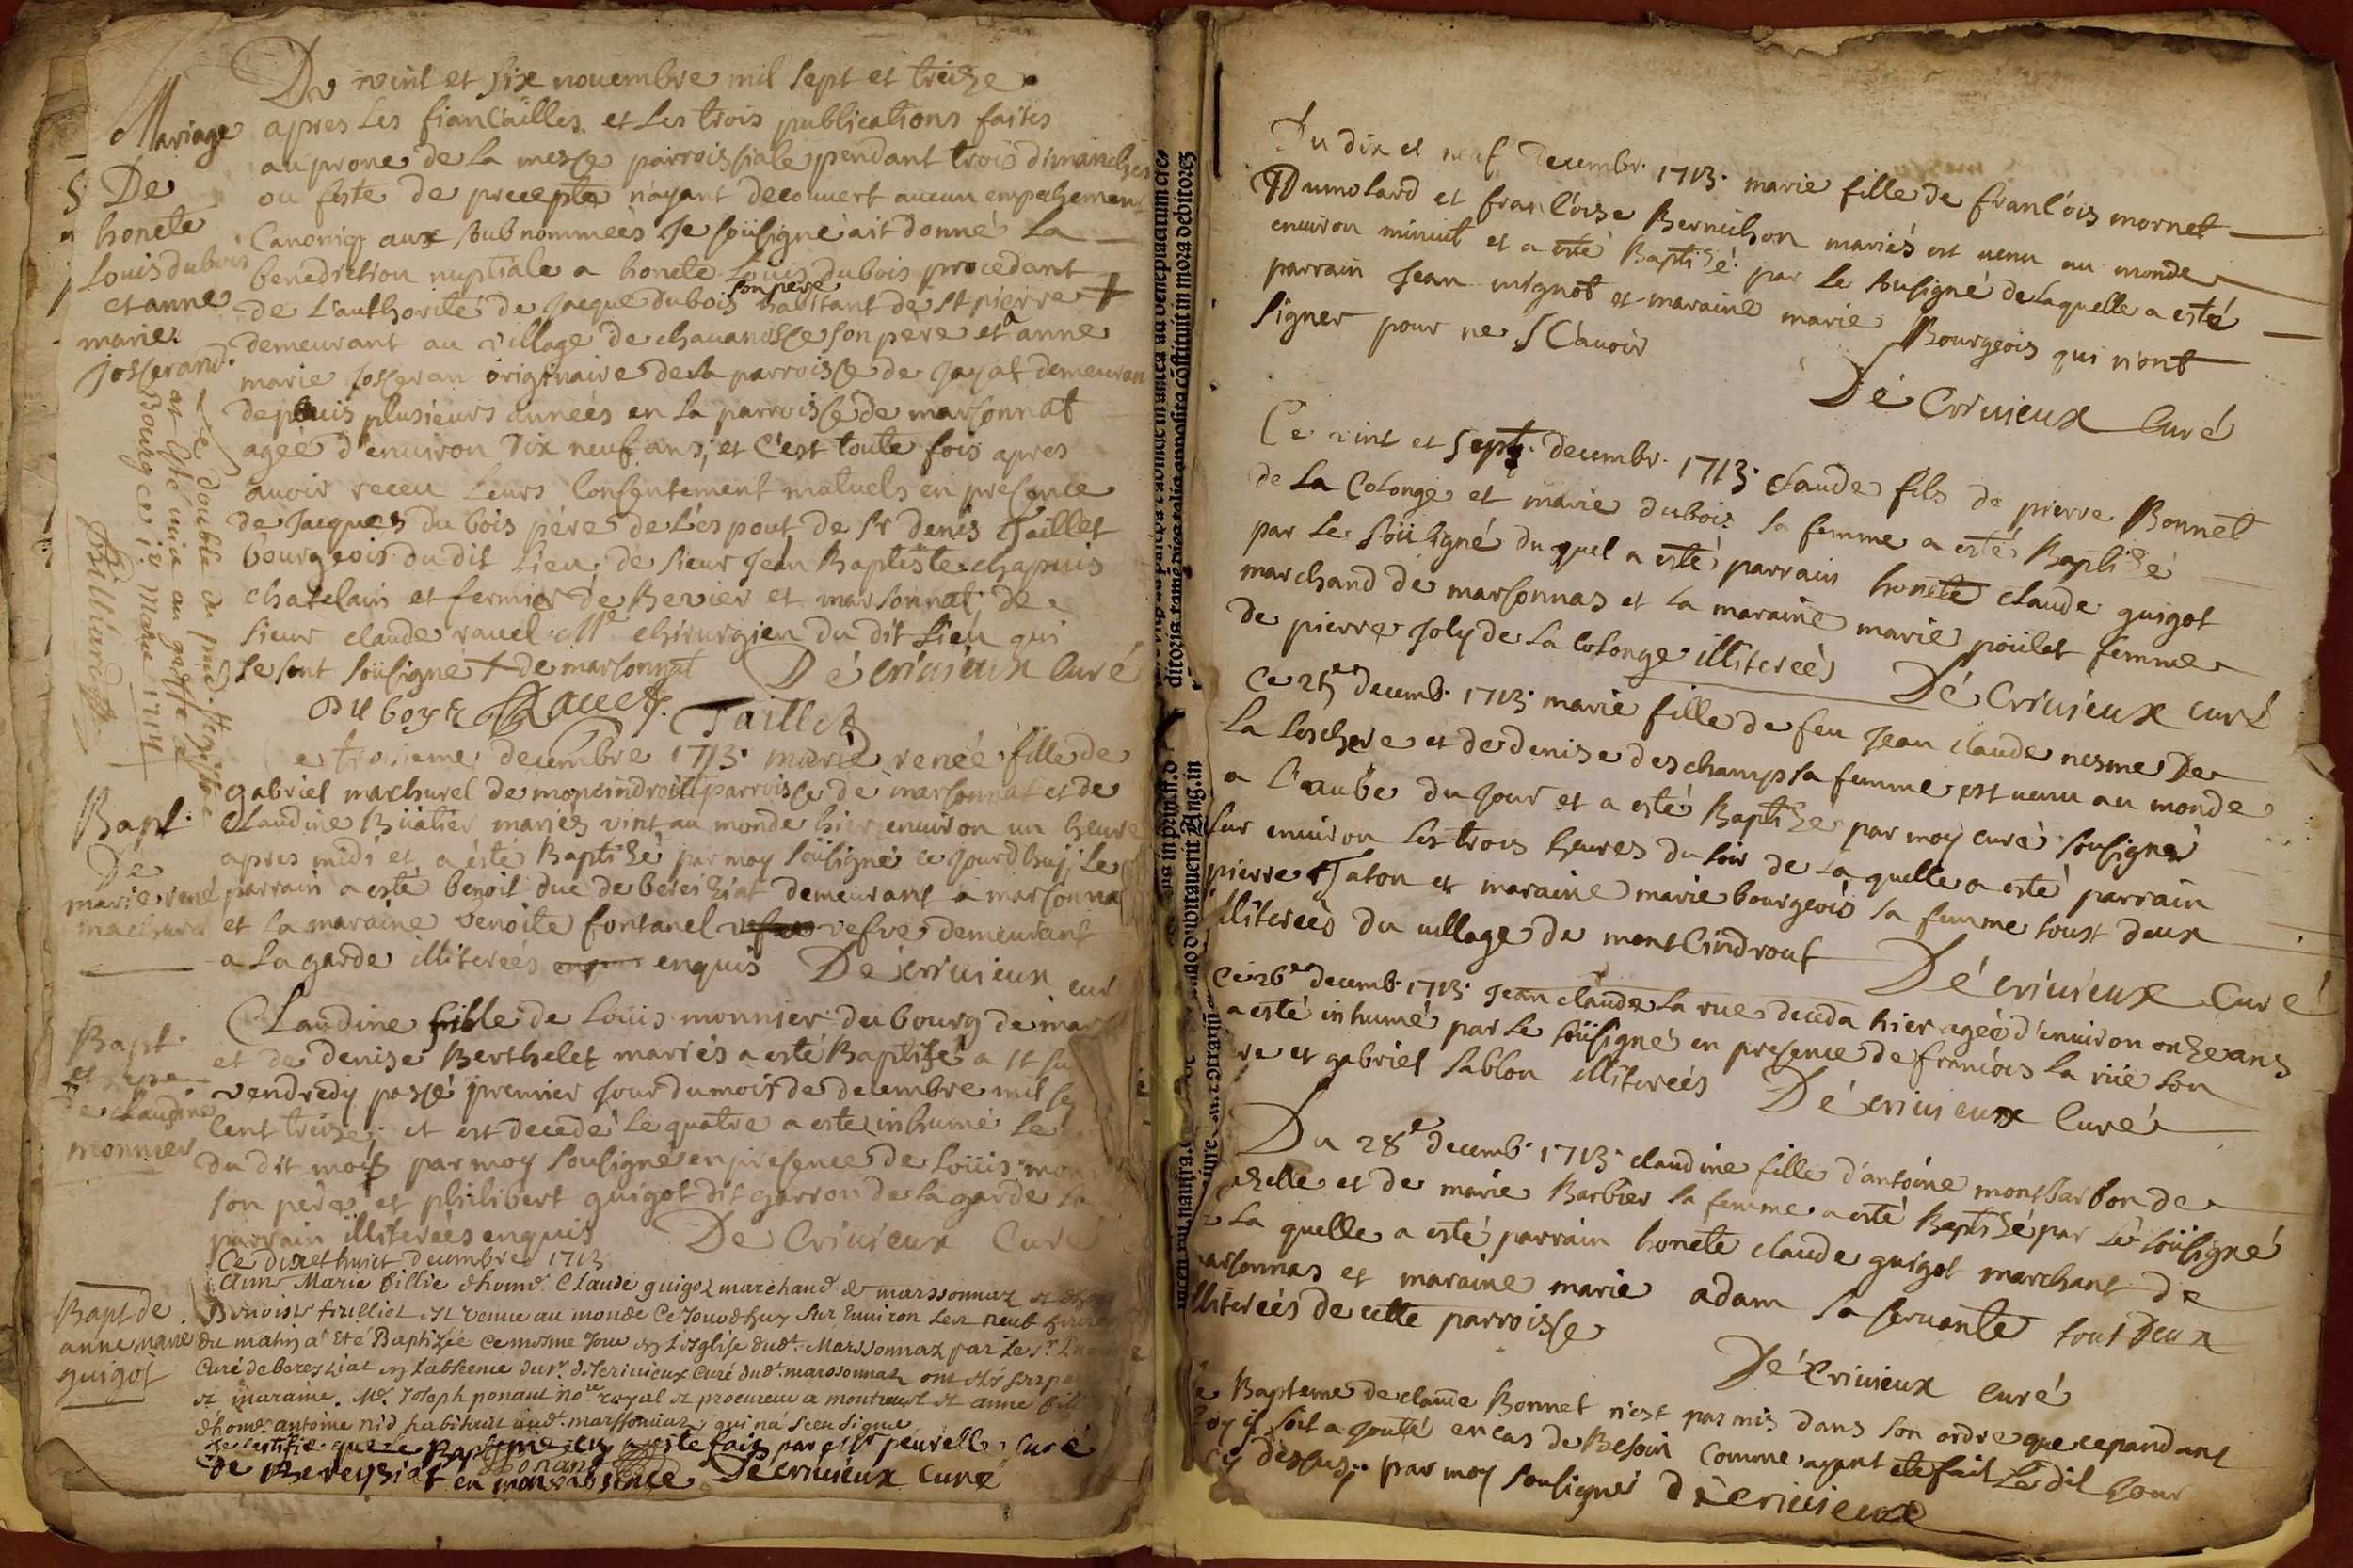 Du vint et six nouembre mil sept et treize
Mariage
De
honete
Louis dubois
et anne
marie
Josserand
apres Les fiançailles et Les trois publications faites
au prone de La messe parroissiale pendant trois dimanches
ou feste de precepte n'ayant decouuert aucun empechement
Canoniq aux soub nommeés Je soüsigné ait donné La
benediction nuptiale a honete Louis dubois procedant
son pere
de L'authorité de Jacque dubois habitant de st pierre +
demeurant au village de chauanosse son pere et a anne
marie Josseran originaire de la parroisse de Jayat demeuran
depuis plusieurs années en la parroisse de marsonnat
ageé d'enuiron dix neuf ans; et c'est toute fois apres
auoir receu Leurs Consentement mutuels en presence
de Jacques du bois pére de L'espout de sr denis Taillet
bourgeois du dit Lieu de sieur Jean Baptiste chapuis
chatelain et fermier de Bevier et marsonnat; de
sieur claude rauel Me chirurgien du dit Lieu qui
se sont soüsigné + de marsonnat Décriuieux Curé
Duboys Rauet Taillet
Le double du pnt. registre
at esté mis au greffe de
Bourg ce 18 Mars 1714
Billiard
Bapt.
De
marie rené
machurel
e troisieme decembre 1713. marie renée fille de
gabriel machurel de moncindroit parroisse de marsonnat et de
claudine Büatier mariez vint au monde hier enuiron un heure
apres midi et a èsté Baptizé par moy soüsigné ce Jourdhuj; Le
parrain a esté benoit duc de bereiziat demeurant a marsonna
et la maraine Benoite fontanel vefve demeurant
a La garde illitereés enquis Décriuieux cur
Bapt.
et sepe
de claudine
monnier
Claudine fille de Loüis monnier du bourg de mar
et de denise Berthelet mariés a esté Baptizé a st su
vendredy passé premier Jour du mois de decembre mil se
Cent treize; et est decedé Le quatre a esté inhumé Le
du dit mois par moy sousigné en presence de Loüis mon
son père et philibert guigot dit garron de La garde La
parrain illitereés enquis De Criuieux Curé
Bapt de
anne marie
guigot
Ce dixet huict decembre 1713
Anne Marie fillie dhome Claude guigoz marchand de marssonnaz et dh
Benoiste fizilliet est venue au monde Ce Jourdhuy sur Enuiron Les neuf heures
du matin at Eté Baptizée ce mesme Jour en L'Eglise dudt. Marssonnaz par Le sr.
Curé de bereyziat en Labscence dusr. descriuieux Curé dudt. marssonnaz ont étés
et maraine. Me. Joseph ponant nore royal et procureur a montreuel et anne fil
dhome. antoine nid habitant audt. marssonnaz qui na sceu signer
Je certifie que le Baptême cy a este fait par mr peurelle Curé
Ponant
De Bereyziat en mon absence Décriuieux Curé
Du dix et neuf decembr. 1713. marie fille de francois mornet
Dumolard et francoise Bernichon mariés est venu au monde
enuiron minuit et a esté Baptizé par Le sousigné de Laquelle a esté
parrain Jean mignot et maraine marie Bourgeois qui n'ont
signer pour ne sCauoir
Dé Criuieux Curé
Ce vint et sept. decembr. 1713. claude fils de pierre Bonnet
de La Colonge et marie dubois sa femme a esté Baptizé
par Le soüsigné duquel a esté parrain honete claude guigot
marchand de marsonnas et la maraine marie poület femme
de pierre Joly de La Colonge illitereés Dé Criuieux curé
Ce 25e decemb. 1713. marie fille de feu Jean claude nesme De
La Leschere et de denise deschamps sa femme est uenu au monde
a L'aube du Jour et a esté Baptize par moy curé sousigné
sur enuiron Les trois heures du soir de La quelle a esté parrain
pierre Jaton et maraine marie bourgeois sa femme toust deux
illitereés du uillage de montCindrout Décriuieux Curé
Ce 26e decemb. 1713. Jean claude La rue deceda hier ageé d'enuiron onze ans
a esté inhumé par Le soüsigné en presence de francois La rüe son
re et gabriel sablon illitereés Dé criuieux Curé
Du 28e decemb. 1713. claudine fille d'antoine montbarbon de
zelle et de marie Barbier sa femme a esté Baptizé par Le soüsigné
La quelle a esté parrain honete claude guigot marchant de
marsonnas et maraine marie adam sa seruante tout deux
illitereés de cette parroisse
Dé Criuieux Curé
e Bapteme de claude Bonnet n'est pas mis dans son ordre que cependant
soit ajouté en cas de Besoin Comme ayant eté fait Le dit Jour
cy dessus; par moy sousigné Décriuieux